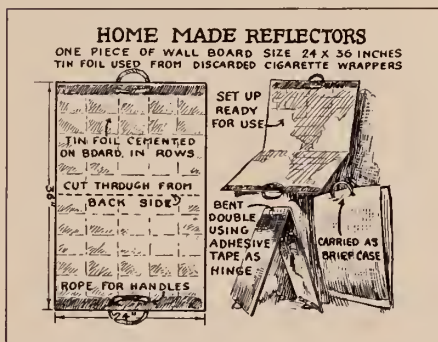 HOME MADE REFLECTORS
ONE PIECE OF WALL BOARD SIZE 24 X 36 INCHES
TIN FOIL USED FROM DISCARDED CIGARETTE WRAPPERS
TIN FOIL CEMENTED
ON BOARD, IN ROWS
36"
CUT THROUGH FROM
BACK SIDE
ROPE FOR HANDLES
24"
SET UP
READY
FOR USE
BENT
DOUBLE
USING
ADHESIVE
TAPE AS
HINGE
CARRIED AS
BRIEF CASE